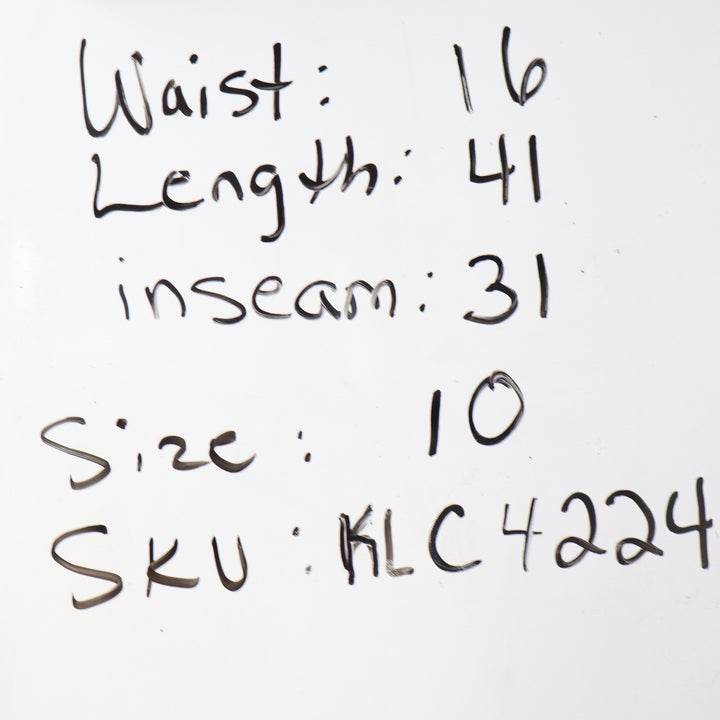 Waist: 16
Length: 41
inseam: 31
Size: 10
SKU: KLC4224